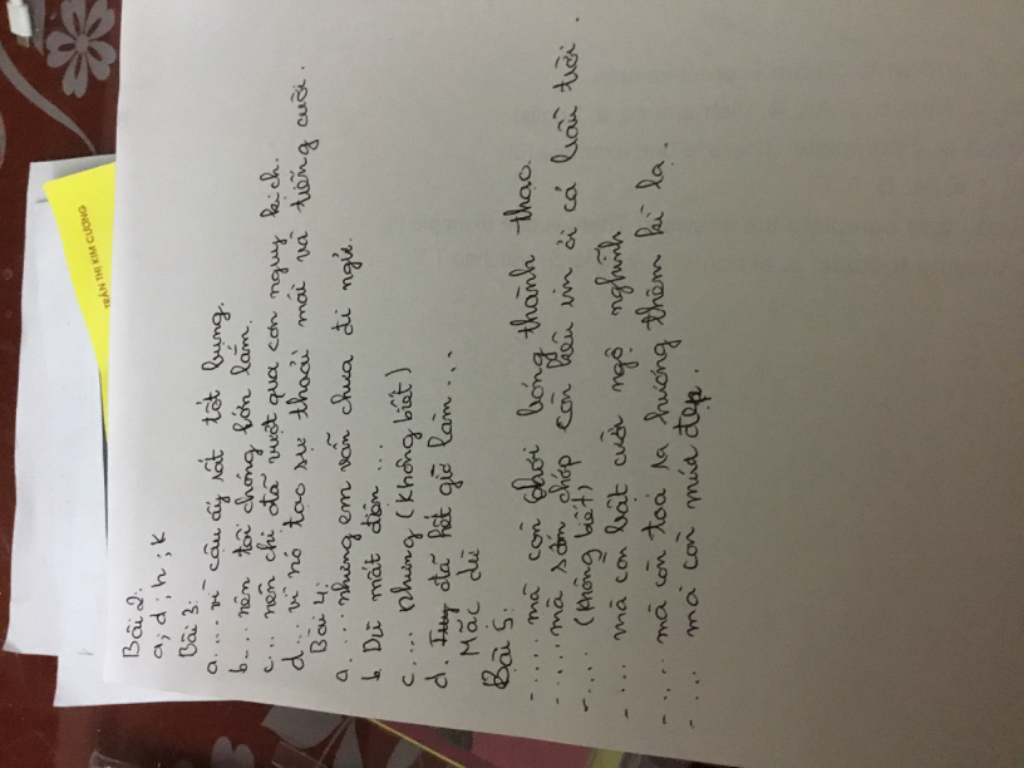 Bài 2:
a; d; h; k
Bài 3:
a.... vì cậu ấy rất tốt bụng.
b... nên tôi chóng lớn lắm.
c... nên chị đã vượt qua cơn nguy kịch.
d... vì nó tạo sự thoải mái và tiếng cười.
Bài 4:
a.... nhưng em vẫn chưa đi ngủ.
b. Dù mất điện...
c.... nhưng (không biết)
d. đã hết giờ làm...
Mặc dù
Bài 5:
-.... mà còn chơi bóng thành thạo.
-.... mà sớm chớp còn kêu inh ỏi cả bầu trời.
-.... (không biết)
-.... mà còn bật cười ngộ nghĩnh
-.... mà còn toả ra hương thơm kì lạ.
-.... mà còn múa đẹp.
TRẦN THỊ KIM CƯƠNG